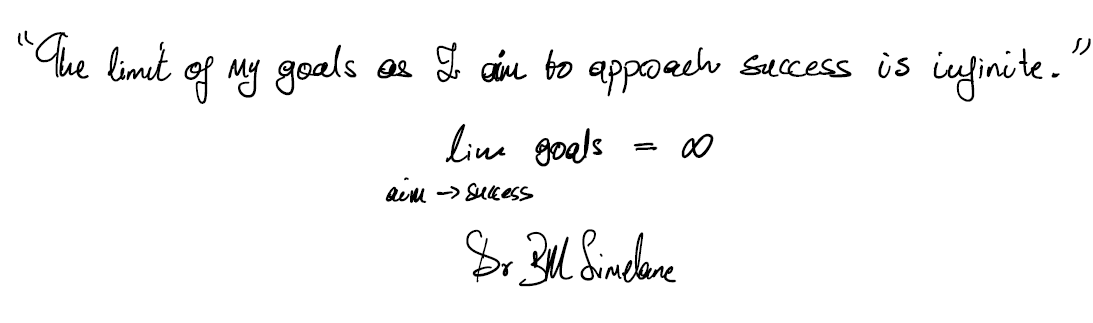 "The limit of My goals as I aim to approach success is infinite."
lim goals = ∞
aim → success
Dr BM Simelane